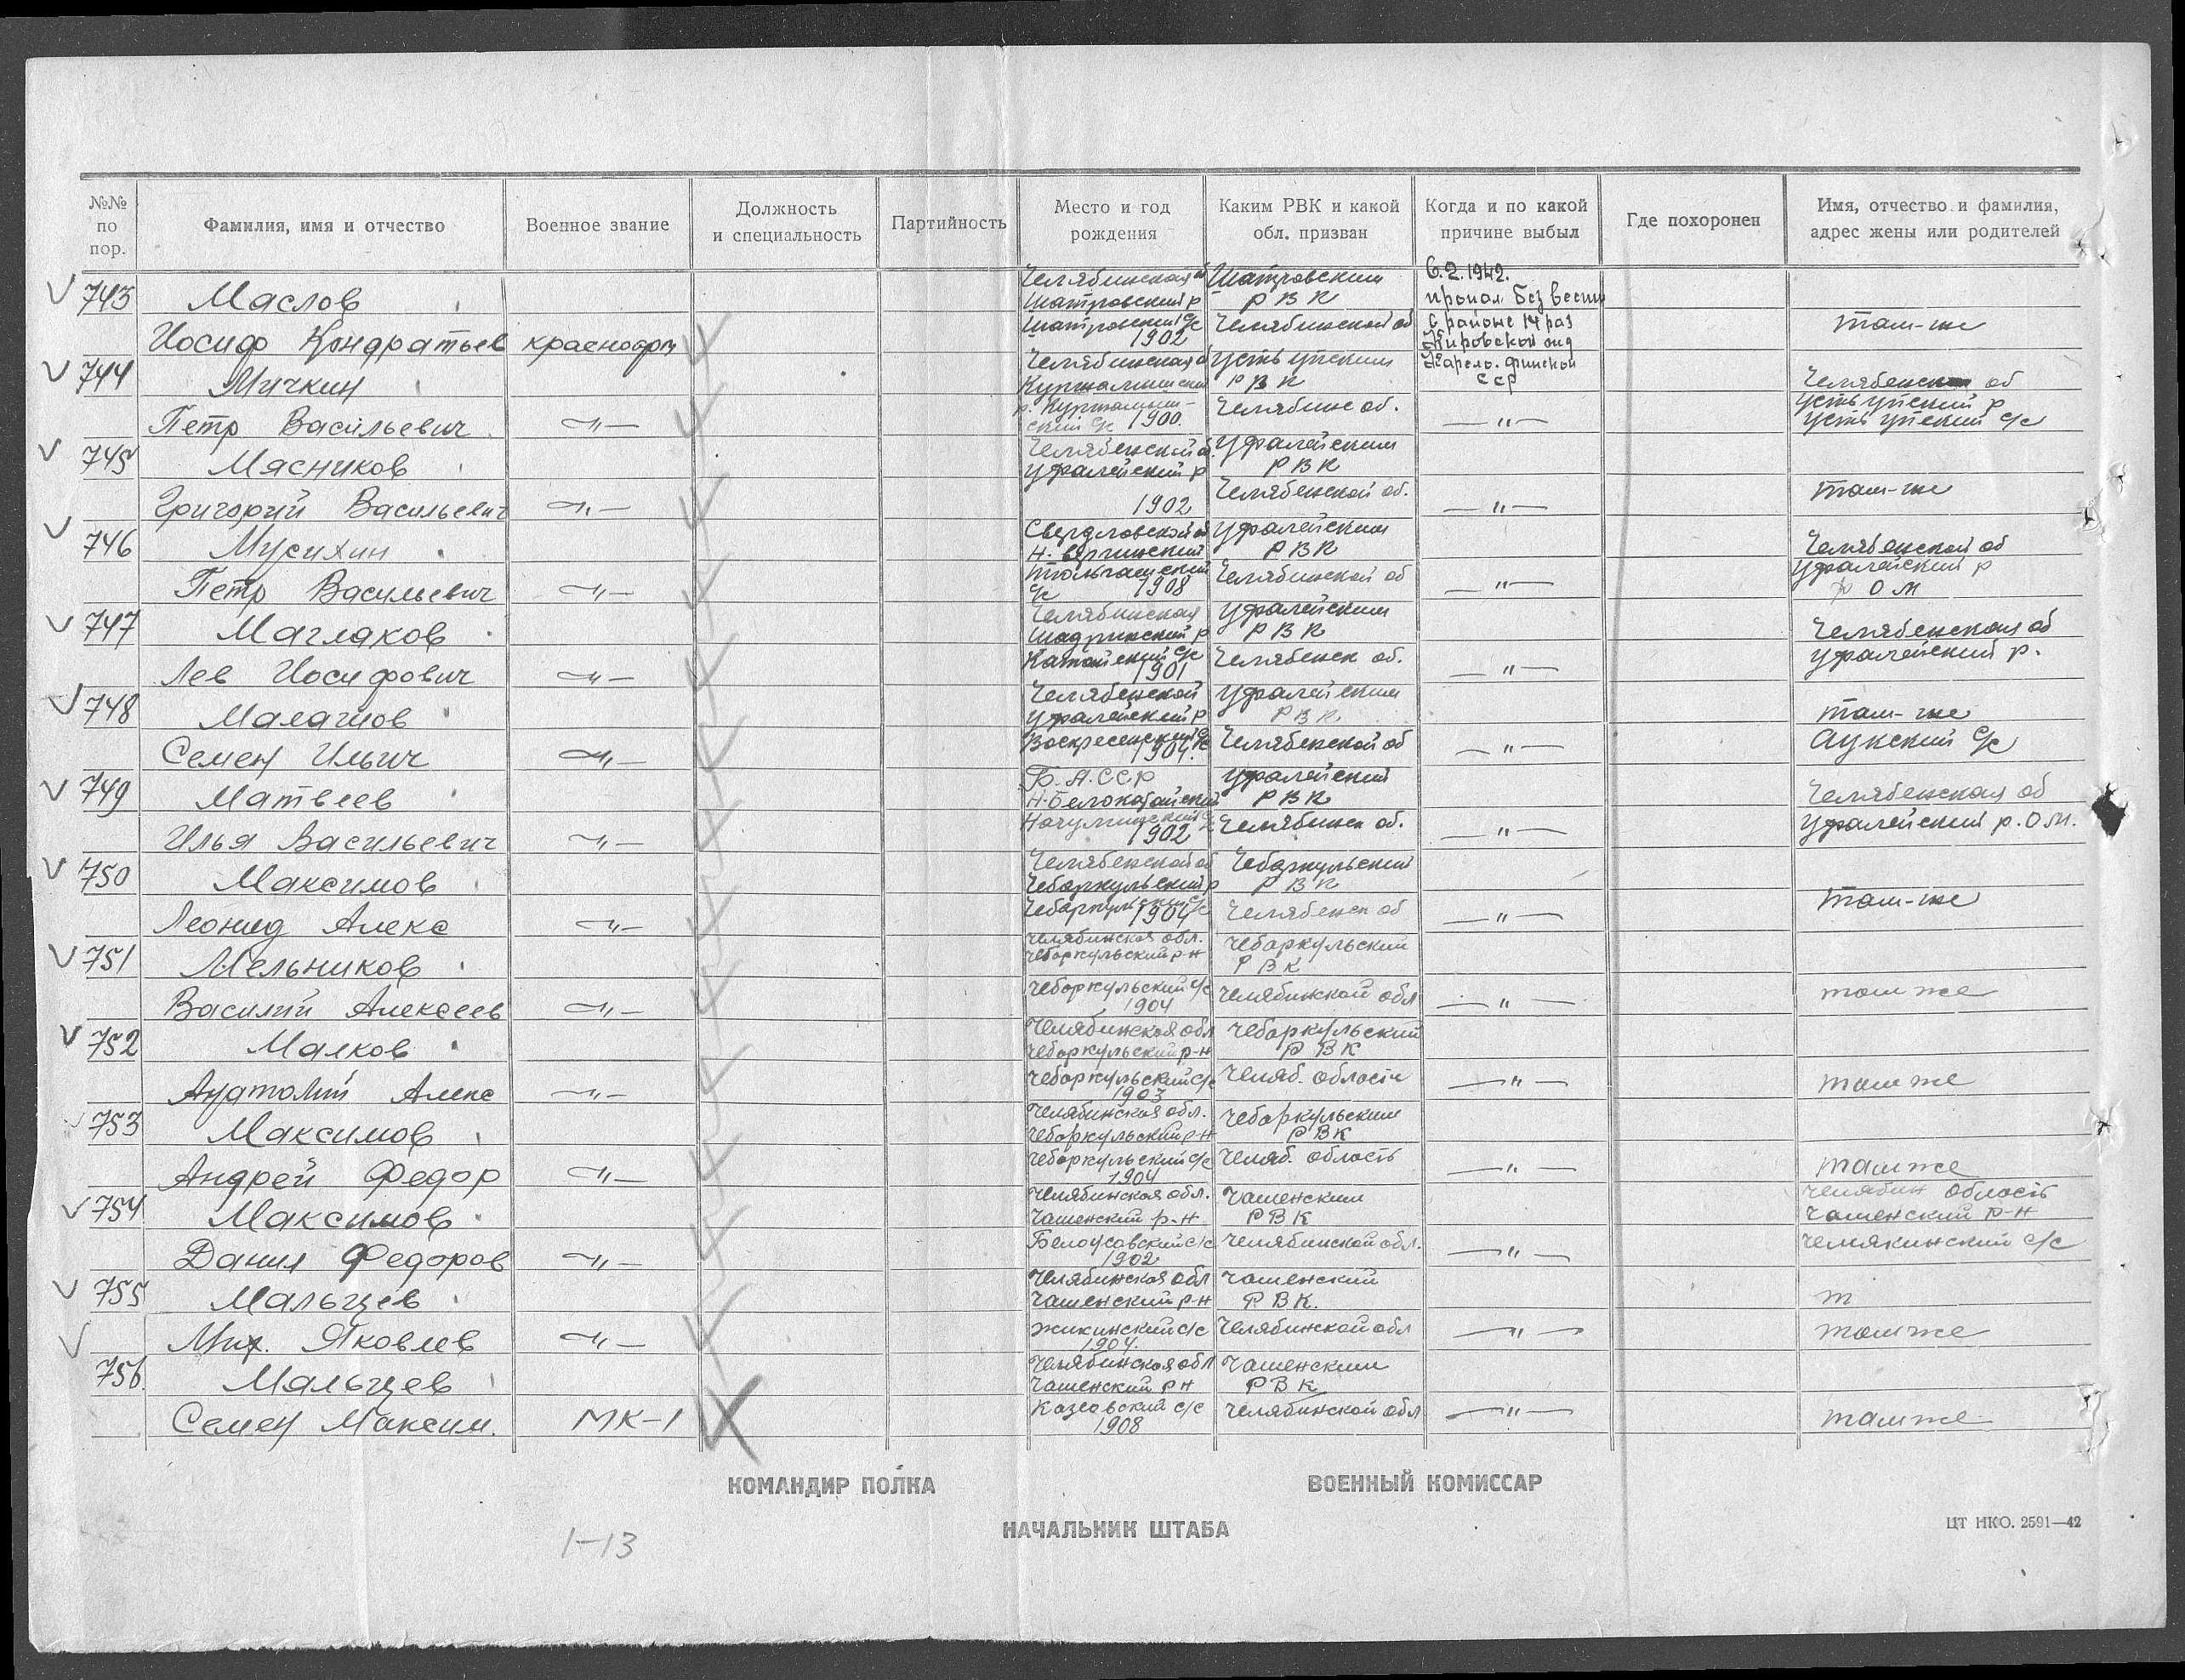 №№ по пор.
Фамилия, имя и отчество
Военное звание
Должность и специальность
Партийность
Место и год рождения
Каким РВК и какой обл. призван
Когда и по какой причине выбыл
Где похоронен
Имя, отчество и фамилия, адрес жены или родителей
743 Маслов Челябинская Шатровским 6.2.1942.
Шатровский р РВК пропал без вести
Иосиф Кондратьев красноарм 1902 Челябинской об в районе 14 раз там-же
Кировской жд
744 Мичкин Челябинская РВК Карело. финской ССР
Петр Васильевич —„— 1900. Челябинс об. —„—
745 Мясников Челябенской об. Уфалейским
Уфалейский р РВК
Григорий Васильевич —„— 1902 Челябенской об. —„— там-же
746 Мусихин Свердловской об Уфалейским
РВК Челябенской об
Петр Васильевич —„— 1908 Челябинской об —„— Уфалейский р
747 Маглаков Челябинская Уфалейским
Шадринский р РВК Челябенская об
Лев Иосифович —„— 1901 Челябенск об. —„— Уфалейский р.
748 Малашов Челябенской Уфалейским
Уфалейский р РВК там-же
Семен Ильич —„— Воскресенский с/с 1904. Челябенской об —„— Аукский с/с
749 Матвеев Б.А.ССР Уфалейский
Н-Белокатайский РВК Челябенская об
Илья Васильевич —„— 1902 Челябинск об. —„— Уфалейский р. ОМ.
750 Максимов Челябенской об Чебаркульский
Чебаркульский р РВК
Леонид Алекс —„— Чебаркульский с/с 1904 Челябенск об —„— там-же
751 Мельников Челябинская обл. Чебаркульский
Чебаркульский р-н РВК
Василий Алексеев —„— Чебаркульский с/с 1904 Челябинской обл —„— там же
752 Малков Челябинская обл Чебаркульский
Чебаркульский р-н РВК
Анатолий Алекс —„— Чебаркульский с/с 1903 Челяб. область —„— там же
753 Максимов Челябинская обл. Чебаркульским
Чебаркульский р-н РВК
Андрей Федор —„— Чебаркульский с/с 1904 Челяб. область —„— там же
754 Максимов Челябинская обл. Чашенским Челябин область
Чашенский р-н РВК Чашенский р-н
Данил Федоров —„— Белоусовский с/с 1902 Челябинской обл. —„—
755 Мальцев Челябинская обл Чашенский
Чашенский р-н РВК. т
Мих. Яковлев —„— Жикинский с/с 1904. Челябинской обл —„— там же
756. Мальцев Челябинская обл Чашенским
Чашенский рн РВК
Семен Максим. МК-1 1908 Челябинской обл —„— там же
КОМАНДИР ПОЛКА
ВОЕННЫЙ КОМИССАР
НАЧАЛЬНИК ШТАБА
ЦТ НКО. 2591—42
1-13